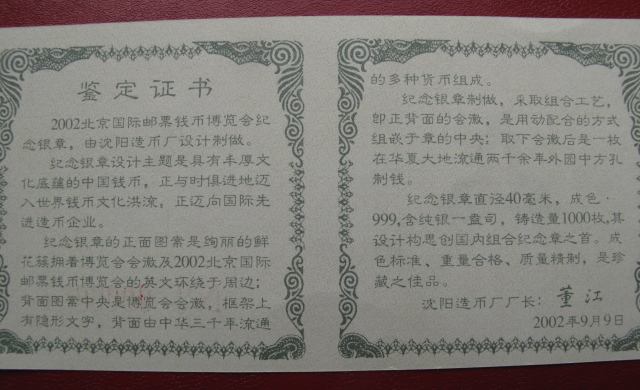 鉴定证书
2002北京国际邮票钱币博览会纪
念银章，由沈阳造币厂设计制做。
纪念银章设计主题是具有丰厚文
化底蕴的中国钱币，正与时俱进地迈
入世界钱币文化洪流，正迈向国际先
进造币企业。
纪念银章的正面图案是绚丽的鲜
花簇拥着博览会会徽及2002北京国际
邮票钱币博览会的英文环绕于周边；
背面图案中央是博览会会徽，框架上
有隐形文字，背面由中华三千年流通
的多种货币组成。
纪念银章制做，采取组合工艺，
即正背面的会徽，是用动配合的方式
组嵌于章的中央；取下会徽后是一枚
在华夏大地流通两千余年外圆中方孔
制钱。
纪念银章直径40毫米，成色·
999,含纯银一盎司，铸造量1000枚,其
设计构思创国内组合纪念章之首。成
色标准、重量合格、质量精制，是珍
藏之佳品。
沈阳造币厂厂长：董江
2002年9月9日